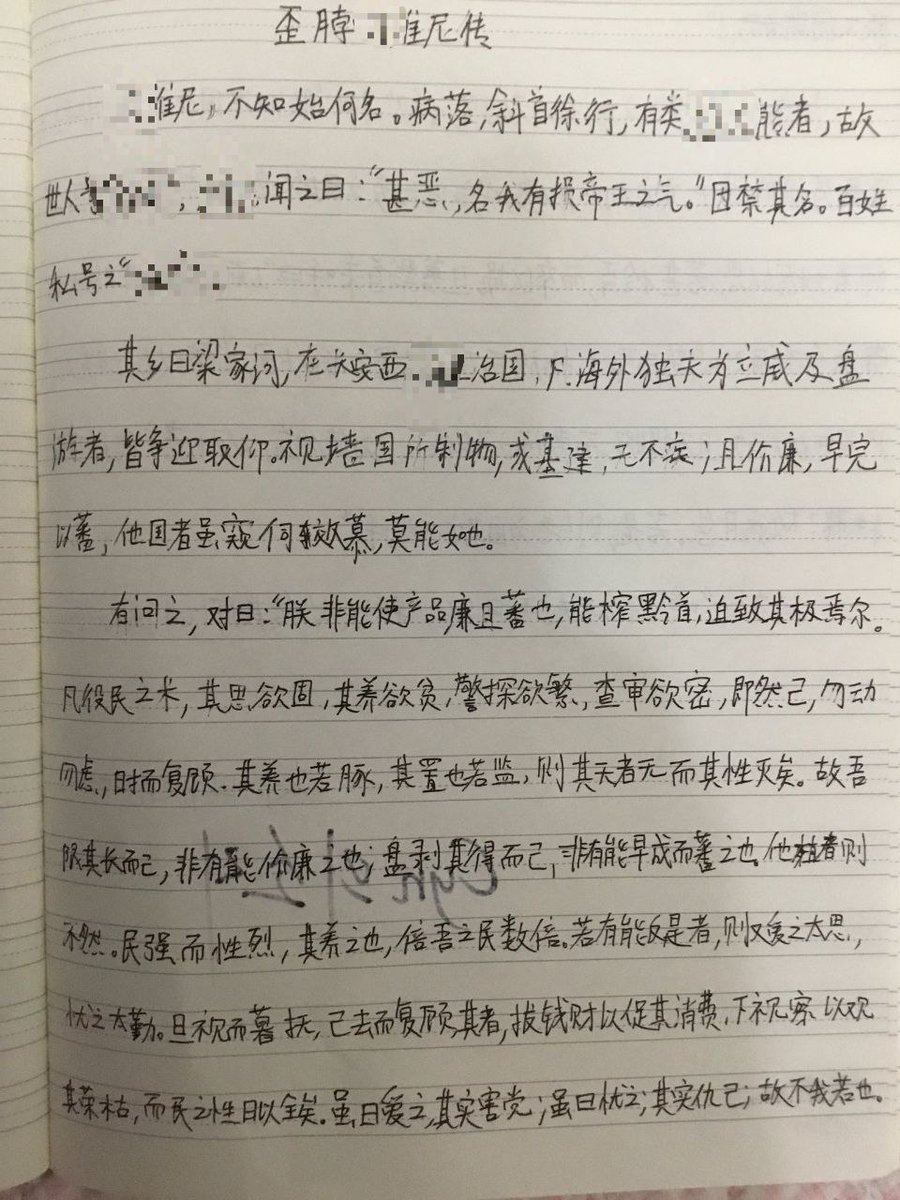 歪脖 维尼传
维尼,不知始何名。病落,斜首徐行,有类 熊者,故
世人 , 闻之曰:“甚恶,名我有损帝王之气。”因禁其名。百姓
私号之“
其乡曰梁家河,在长安西 治国,凡海外独夫为立威及盘
游者,皆争迎取仰。视墙国所制物,或基建,无不疾;且价廉,早完
以蕃,他国者虽窥伺效慕,莫能如也。
有问之,对曰:“朕非能使产品廉且蕃也,能榨黔首,迫致其极焉尔。
凡役民之术,其思欲固,其养欲贫,警探欲繁,查审欲密,即然已,勿动
勿虑,时而复顾。其养也若豚,其置也若监,则其天者无而其性灭矣。故吾
限其长而已,非有能价廉之也;盘剥其得而已,非有能早成而蕃之也。他植者则
不然。民强而性烈,其养之也,倍吾之民数倍。若有能反是者,则又爱之太恩,
忧之太勤。旦视而暮抚,已去而复顾,其者,拔钱财以促其消费,下视察以观
其荣枯,而民之性日以全矣。虽曰爱之,其实害党;虽曰忧之,其实仇己;故不我若也。